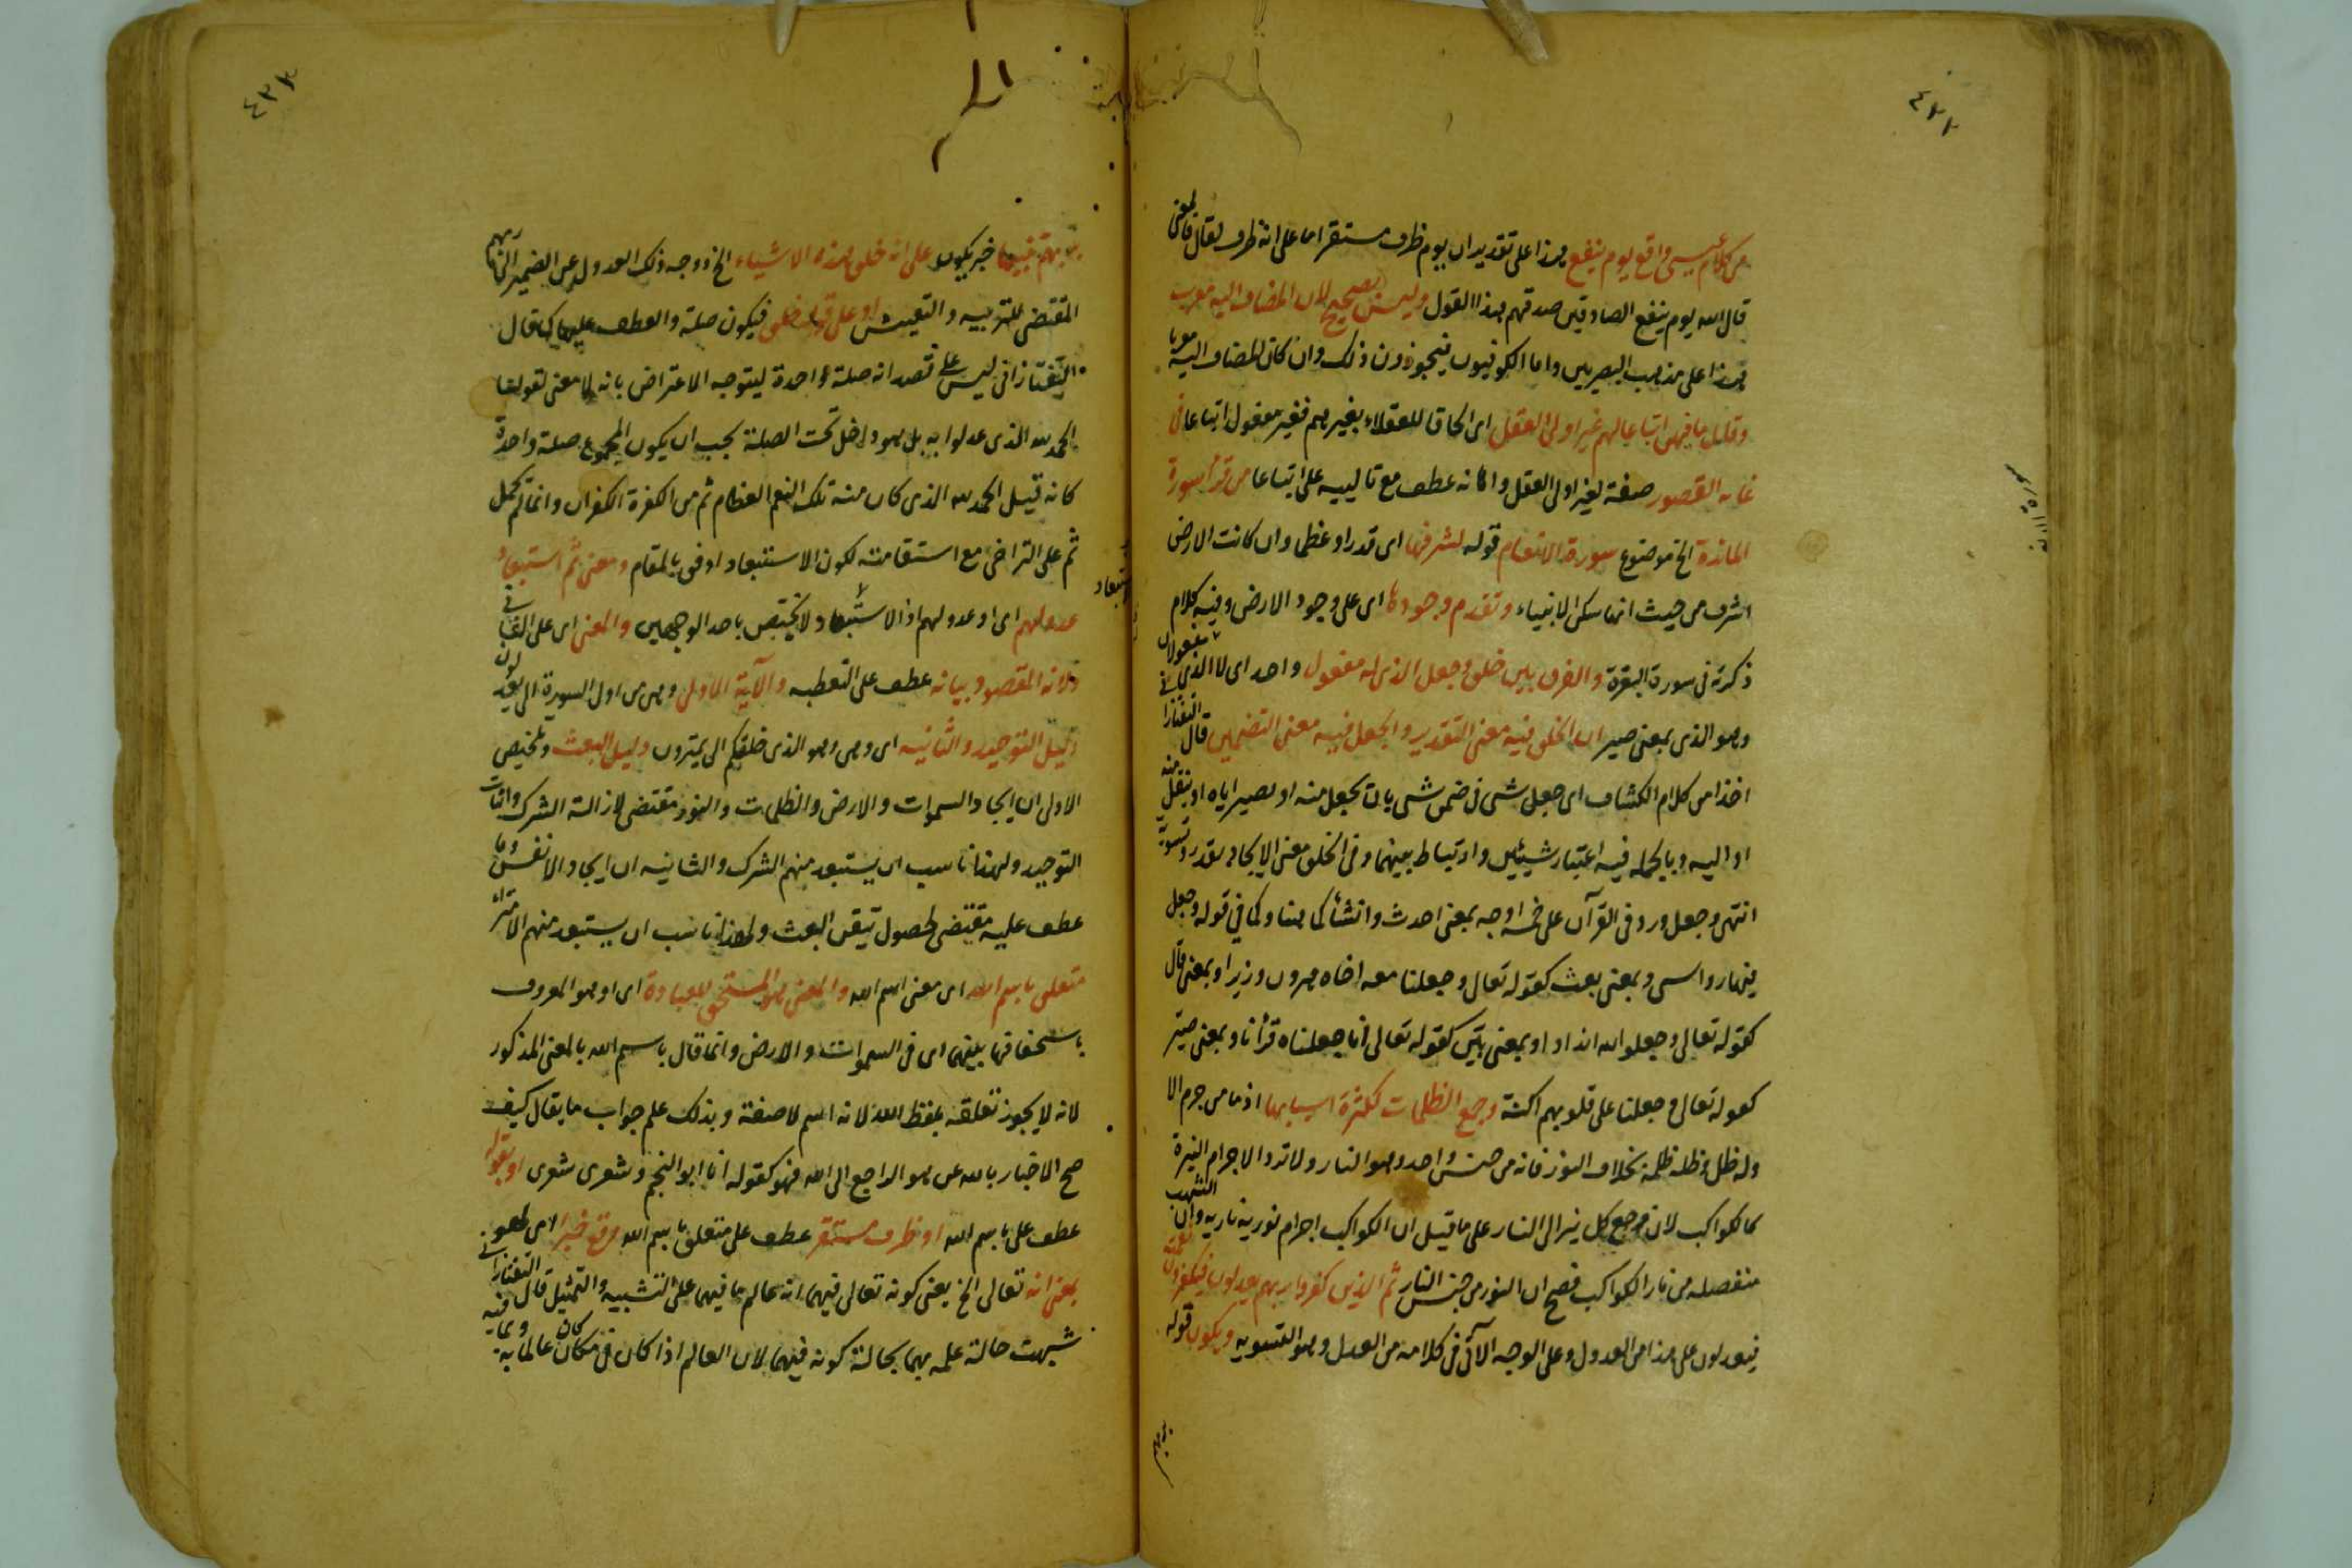 ٤٣٢
من كلام عيسى واقع يوم ينفع هذا على تقدير ان يوم ظرف مستقر اما على انه ظرف لقال فالمعنى
قال الله يوم ينفع الصادقين صدقهم هذا القول وليس بصحيح لان المضاف اليه معرب
هذا على مذهب البصريين واما الكوفيون فيجوزون ذلك وان كان المضاف اليه معربا
وقال ما فيهن اتباعا لهم غير اولى العقل اى الحاقا للعقلاء بغيرهم فغير مفعول اتباعا فى
غاية القصور صفة لغير اولى العقل وا كانه عطف مع تالييه على اتباعا من قرأ سورة
المائدة الخ موضوع سورة الانعام قوله لشرفها اى قدرا وعظما وان كانت الارض
اشرف من حيث انها سكن الانبياء وتقدم وجودها اى على وجود الارض وفيه كلام
ذكرته فى سورة البقرة والفرق بين خلق وجعل الذى له مفعول واحد اى لا الذى له مفعولان
وهو الذى بمعنى صير ان الخلق فيه معنى التقدير والجعل فيه معنى التضمين قال التفتازانى
اخذا من كلام الكشاف اى جعل شىء فى ضمن شىء بان يحصل منه او يصير اياه او ينقل منه
او اليه وبالجملة فيه اعتبار شيئين وارتباط بينهما وفى الخلق معنى الايجاد بقدر وتسوية
انتهى وجعل ورد فى القرآن على خمسة اوجه بمعنى احدث وانشأ كما هنا وكما فى قوله وجعل
فيها رواسى وبمعنى بعث كقوله تعالى وجعلنا معه اخاه هرون وزيرا وبمعنى قال
كقوله تعالى وجعلوا الله اندادا وبمعنى بيّن كقوله تعالى انا جعلناه قرأنا وبمعنى صيّر
كقوله تعالى وجعلنا على قلوبهم اكنة وجمع الظلمات لكثرة اسبابها اذ ما من جرم الا
وله ظل وظله ظلمة بخلاف النور فانه من جنس واحد وهو النار ولا ترد الاجرام النيرة
كالكواكب لان مرجع كل نير الى النار على ما قيل ان الكواكب اجرام نورية نارية وان الشهب
منفصلة من نار الكواكب فصح ان النور من جنس النار ثم الذين كفروا بربهم يعدلون فيكفرون نعمته
فيعدلون على هذا من العدول وعلى الوجه الآتى فى كلامه من العدل وهو التسوية ويكون قوله
بربهم
٤٣٣
بربهم تنبيها خبر يكون على انه خلق هذه الاشياء الخ ووجه ذلك العدول عن الضمير الى ربهم
المقتضى للتربية والتعيش او على قوله خلق فيكون صلة والعطف عليها كما قال
التفتازانى ليس على قصد انه صلة واحدة ليتوجه الاعتراض بانه لا معنى لقولنا
الحمد لله الذى عدلوا به بل هو داخل تحت الصلة بحسب ان يكون المجموع صلة واحدة
كانه قيل الحمد لله الذى كان منه تلك النعم العظام ثم من الكفرة الكفران وانما لم تحمل
ثم على التراخى مع استقامته لكون الاستبعاد اوفق بالمقام ومعنى ثم استبعاد
عدولهم اى او عدولهم اذ الاستبعاد لا يختص باحد الوجهين والمعنى اى على الثانى
ولانه المقصود بيانه عطف على التعظيم والآية الاولى وهى من اول السورة الى يعدلون
دليل التوحيد والثانية اى وهى وهو الذى خلقكم الى يمترون دليل البعث وتلخيص
الاولى ان ايجاد السموات والارض والظلمات والنور مقتضى لازالة الشرك واثبات
التوحيد ولهذا ناسب ان يستبعد منهم الشرك والثانية ان ايجاد الانفس وما
عطف عليه مقتضى لحصول تيقن البعث ولهذا ناسب ان يستبعد منهم الامتراء
متعلق باسم الله اى معنى اسم الله والمعنى هو المستحق للعبادة اى او هو المعروف
باستحقاقها فيهما اى فى السموات والارض وانما قال باسم الله بالمعنى المذكور
لانه لا يجوز تعلقه بلفظ الله لانه اسم لا صفة وبذلك علم جواب ما يقال كيف
صح الاخبار بالله عن هو الراجع الى الله فهو كقوله انا ابو النجم وشعرى شعرى او بقوله
عطف على باسم الله او ظرف مستقر عطف على متعلق باسم الله وقع خبرا
بمعنى انه تعالى الخ يعنى كونه تعالى فيهما انه عالم بما فيهما على التشبيه والتمثيل قال التفتازانى
شبهت حالة علمه بهما بحالة كونه فيهما لان العالم اذا كان فى مكان كان عالما به وبما فيه